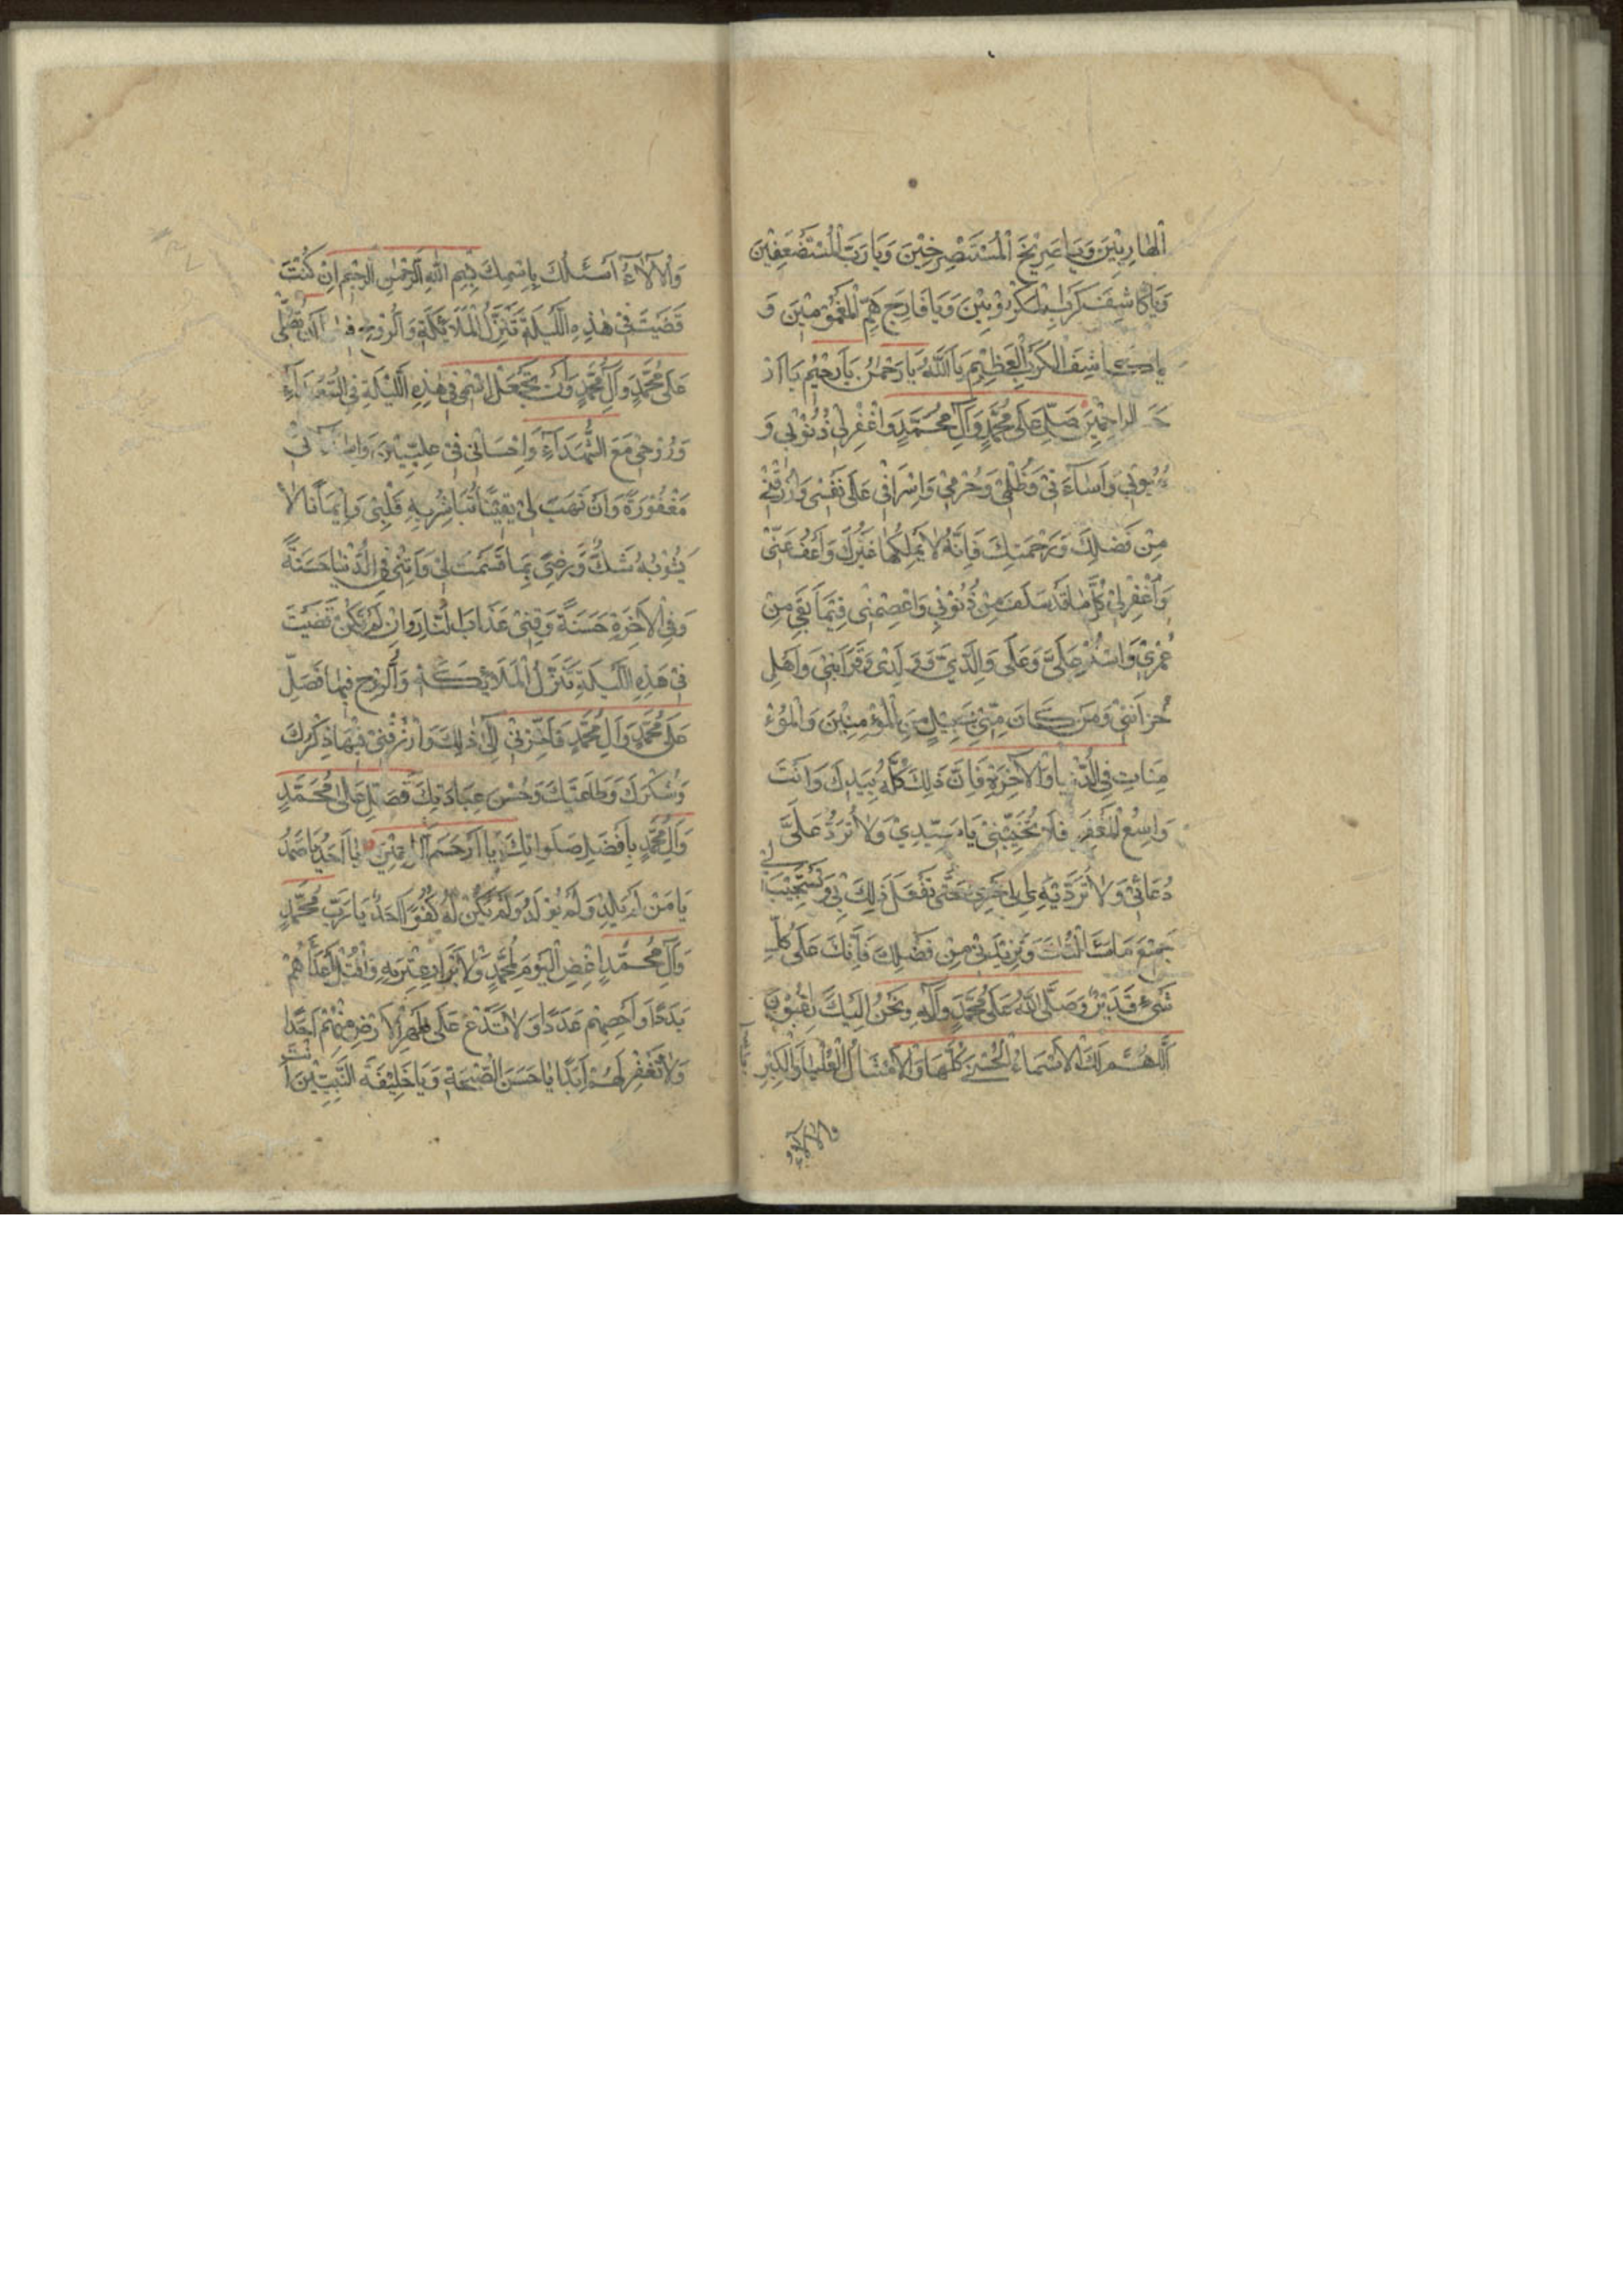 الهاربين ويا صريخ المستصرخين ويا رب المستضعفين
ويا كاشف كرب المكروبين ويا فارج هم المغمومين و
يا كاشف الكرب العظيم يا الله يا رحمن يا رحيم يا ار
حم الراحمين صل على محمد وآل محمد واغفر لي ذنوبي و
عيوبي واساءتي وظلمي وجرمي واسرافي على نفسي وارزقني
من فضلك ورحمتك فانه لا يملكها غيرك واعف عني
واغفر لي كل ما قد سلف من ذنوبي واعصمني فيما بقي من
عمري واستر علي وعلى والدي وولدي وقرابتي واهل
حزانتي ومن كان مني بسبيل من المؤمنين والمؤ
منات في الدنيا والآخرة فان ذلك كله بيدك وانت
واسع المغفرة فلا تخيبني يا سيدي ولا ترد علي
دعائي ولا ترد يدي الى نحري حتى تفعل ذلك بي وتستجيب لي
جميع ما سألتك وتزيدني من فضلك فانك على كل
شيء قدير وصلى الله على محمد وآله ونحن اليك راغبون
اللهم لك الاسماء الحسنى كلها والامثال العليا والكبر
والآلاء
والآلاء اسئلك باسمك بسم الله الرحمن الرحيم ان كنت
قضيت في هذه الليلة تنزل الملائكة والروح فيها ان تصلي
على محمد وآل محمد وان تجعل اسمي في هذه الليلة في السعداء
وروحي مع الشهداء واحساني في عليين واساءتي
مغفورة وان تهب لي يقينا تباشر به قلبي وايمانا لا
يشوبه شك ورضى بما قسمت لي وآتني في الدنيا حسنة
وفي الآخرة حسنة وقني عذاب النار وان لم تكن قضيت
في هذه الليلة تنزل الملائكة والروح فيها فصل
على محمد وآل محمد فاخرني الى ذلك وارزقني فيها ذكرك
وشكرك وطاعتك وحسن عبادتك فصل على محمد
وآل محمد بافضل صلواتك يا ارحم الراحمين يا احد يا صمد
يا من لم يلد ولم يولد ولم يكن له كفوا احد يا رب محمد
وآل محمد اغضب اليوم لمحمد ولابرار عترته واقتل اعداءهم
بددا واحصهم عددا ولا تدع على ظهر الارض منهم احدا
ولا تغفر لهم ابدا يا حسن الصحبة ويا خليفة النبيين انت